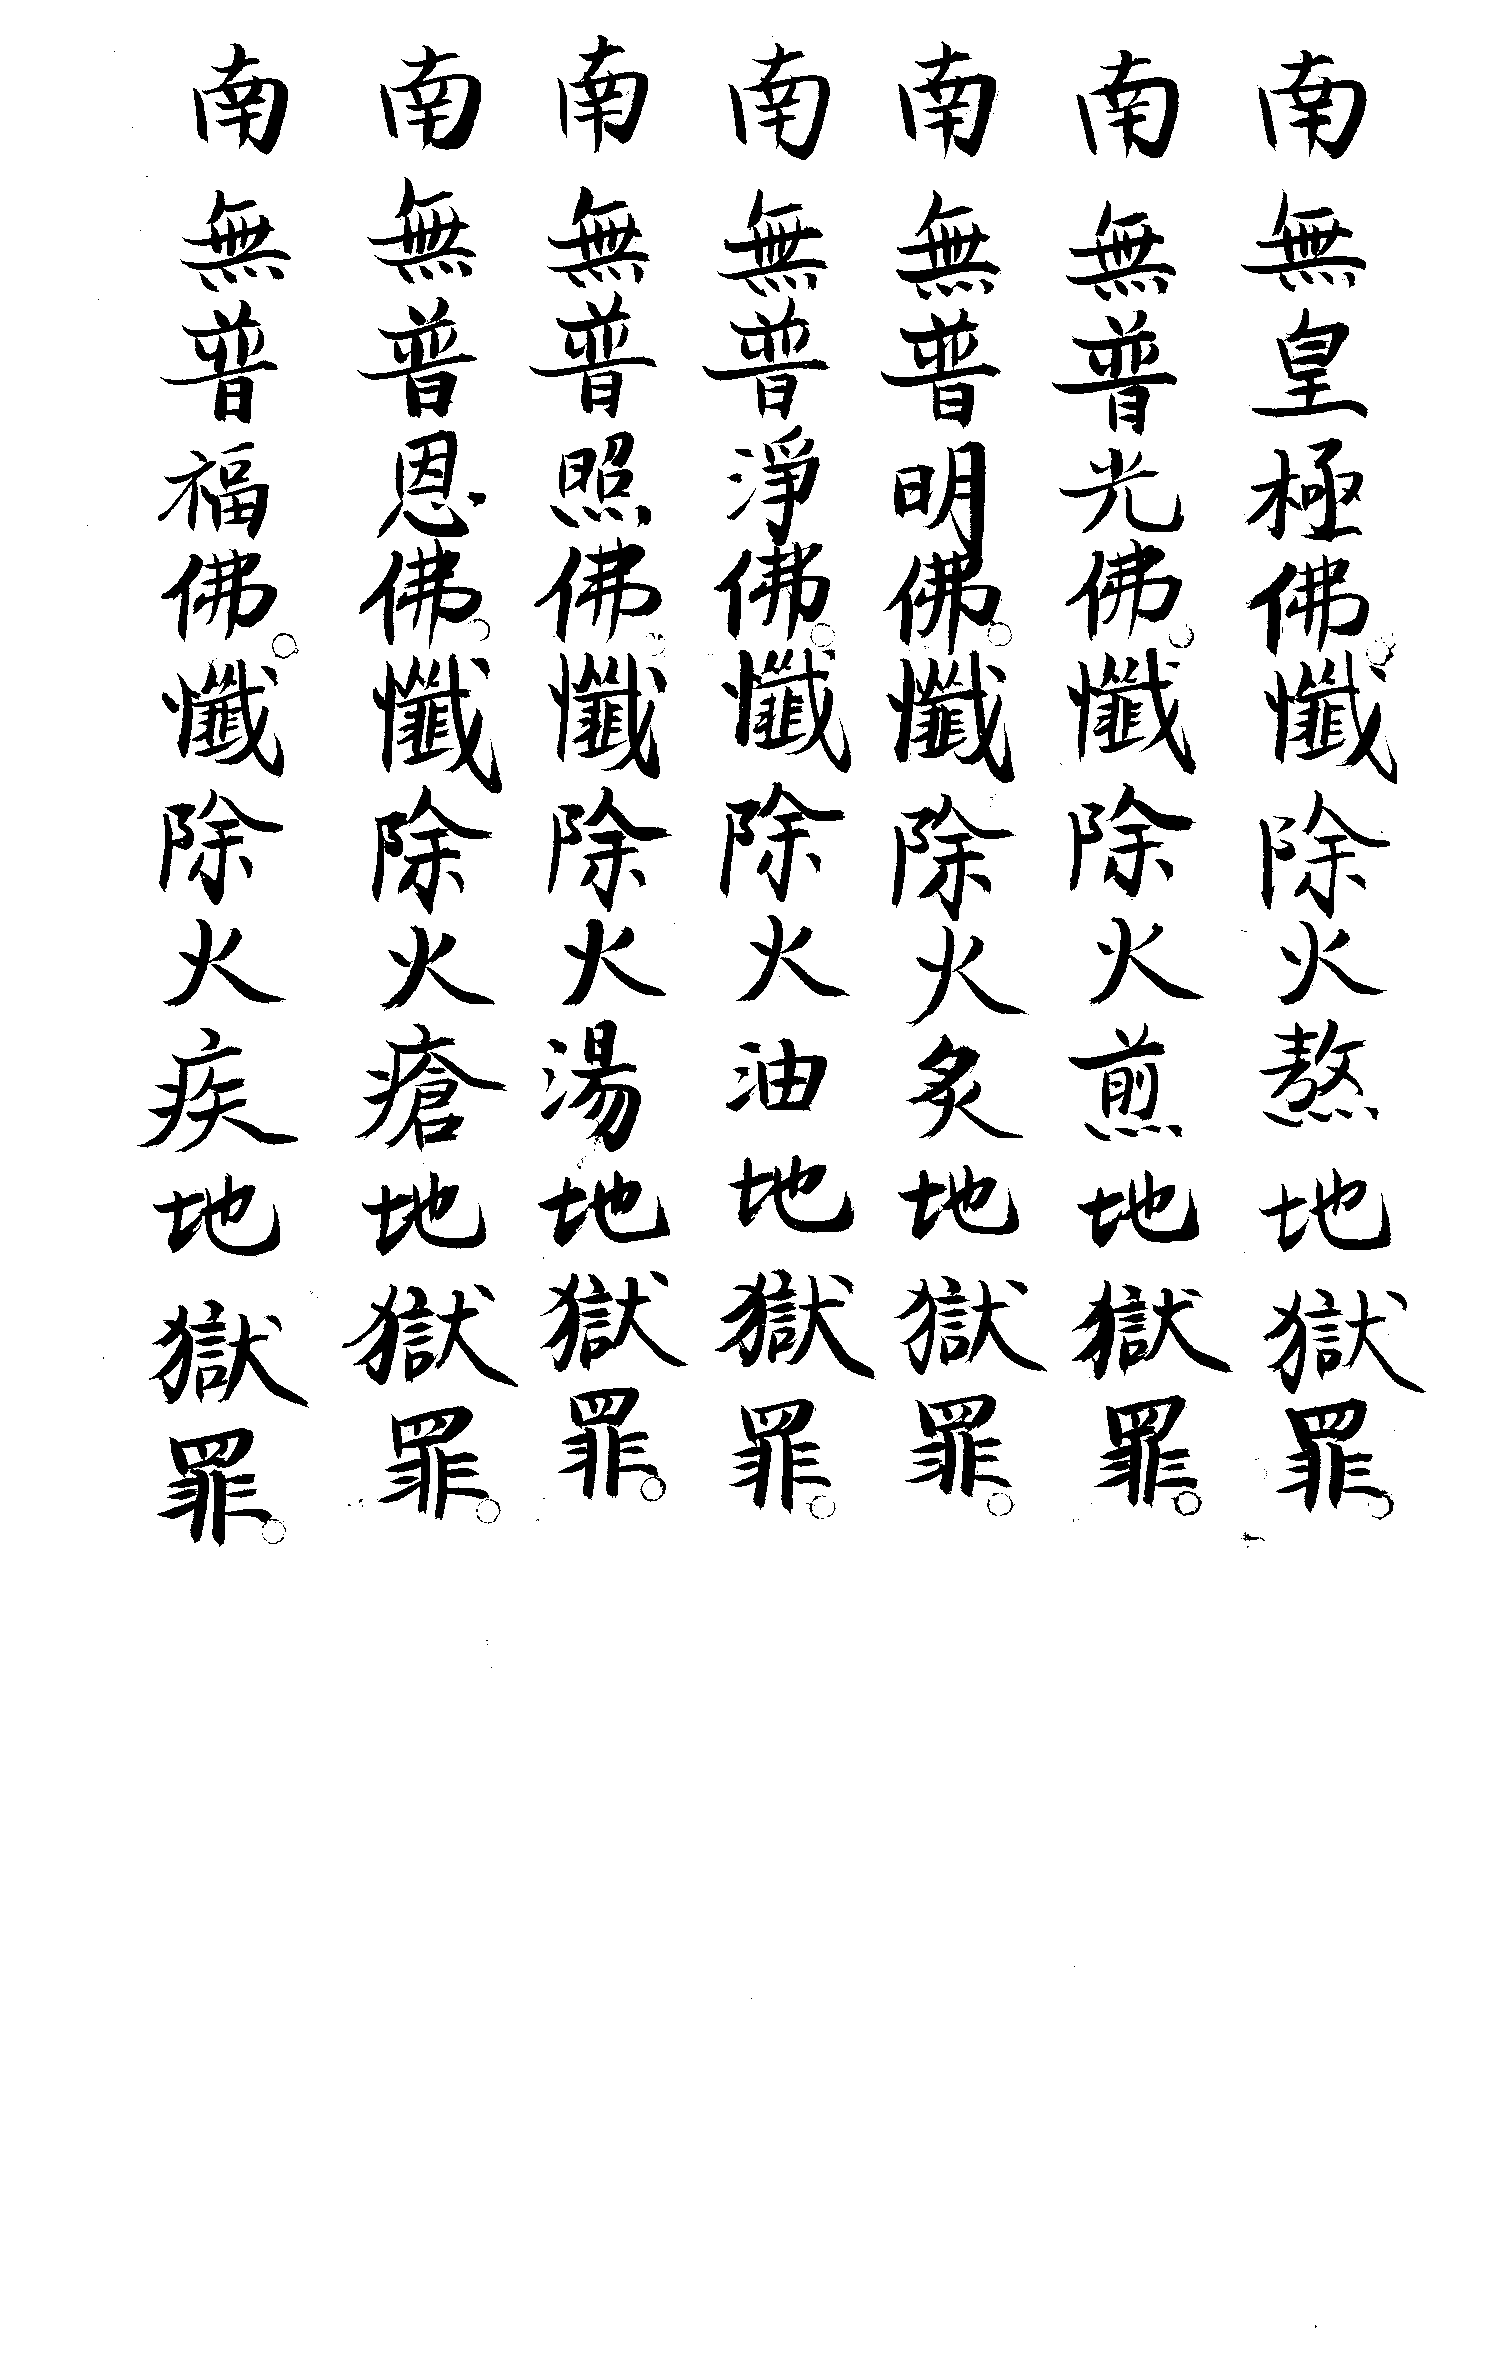 南無皇極佛。懺除火熬地獄罪。
南無普光佛。懺除火煎地獄罪。
南無普明佛。懺除火炙地獄罪。
南無普淨佛。懺除火油地獄罪。
南無普照佛。懺除火湯地獄罪。
南無普恩佛。懺除火瘡地獄罪。
南無普福佛。懺除火疾地獄罪。